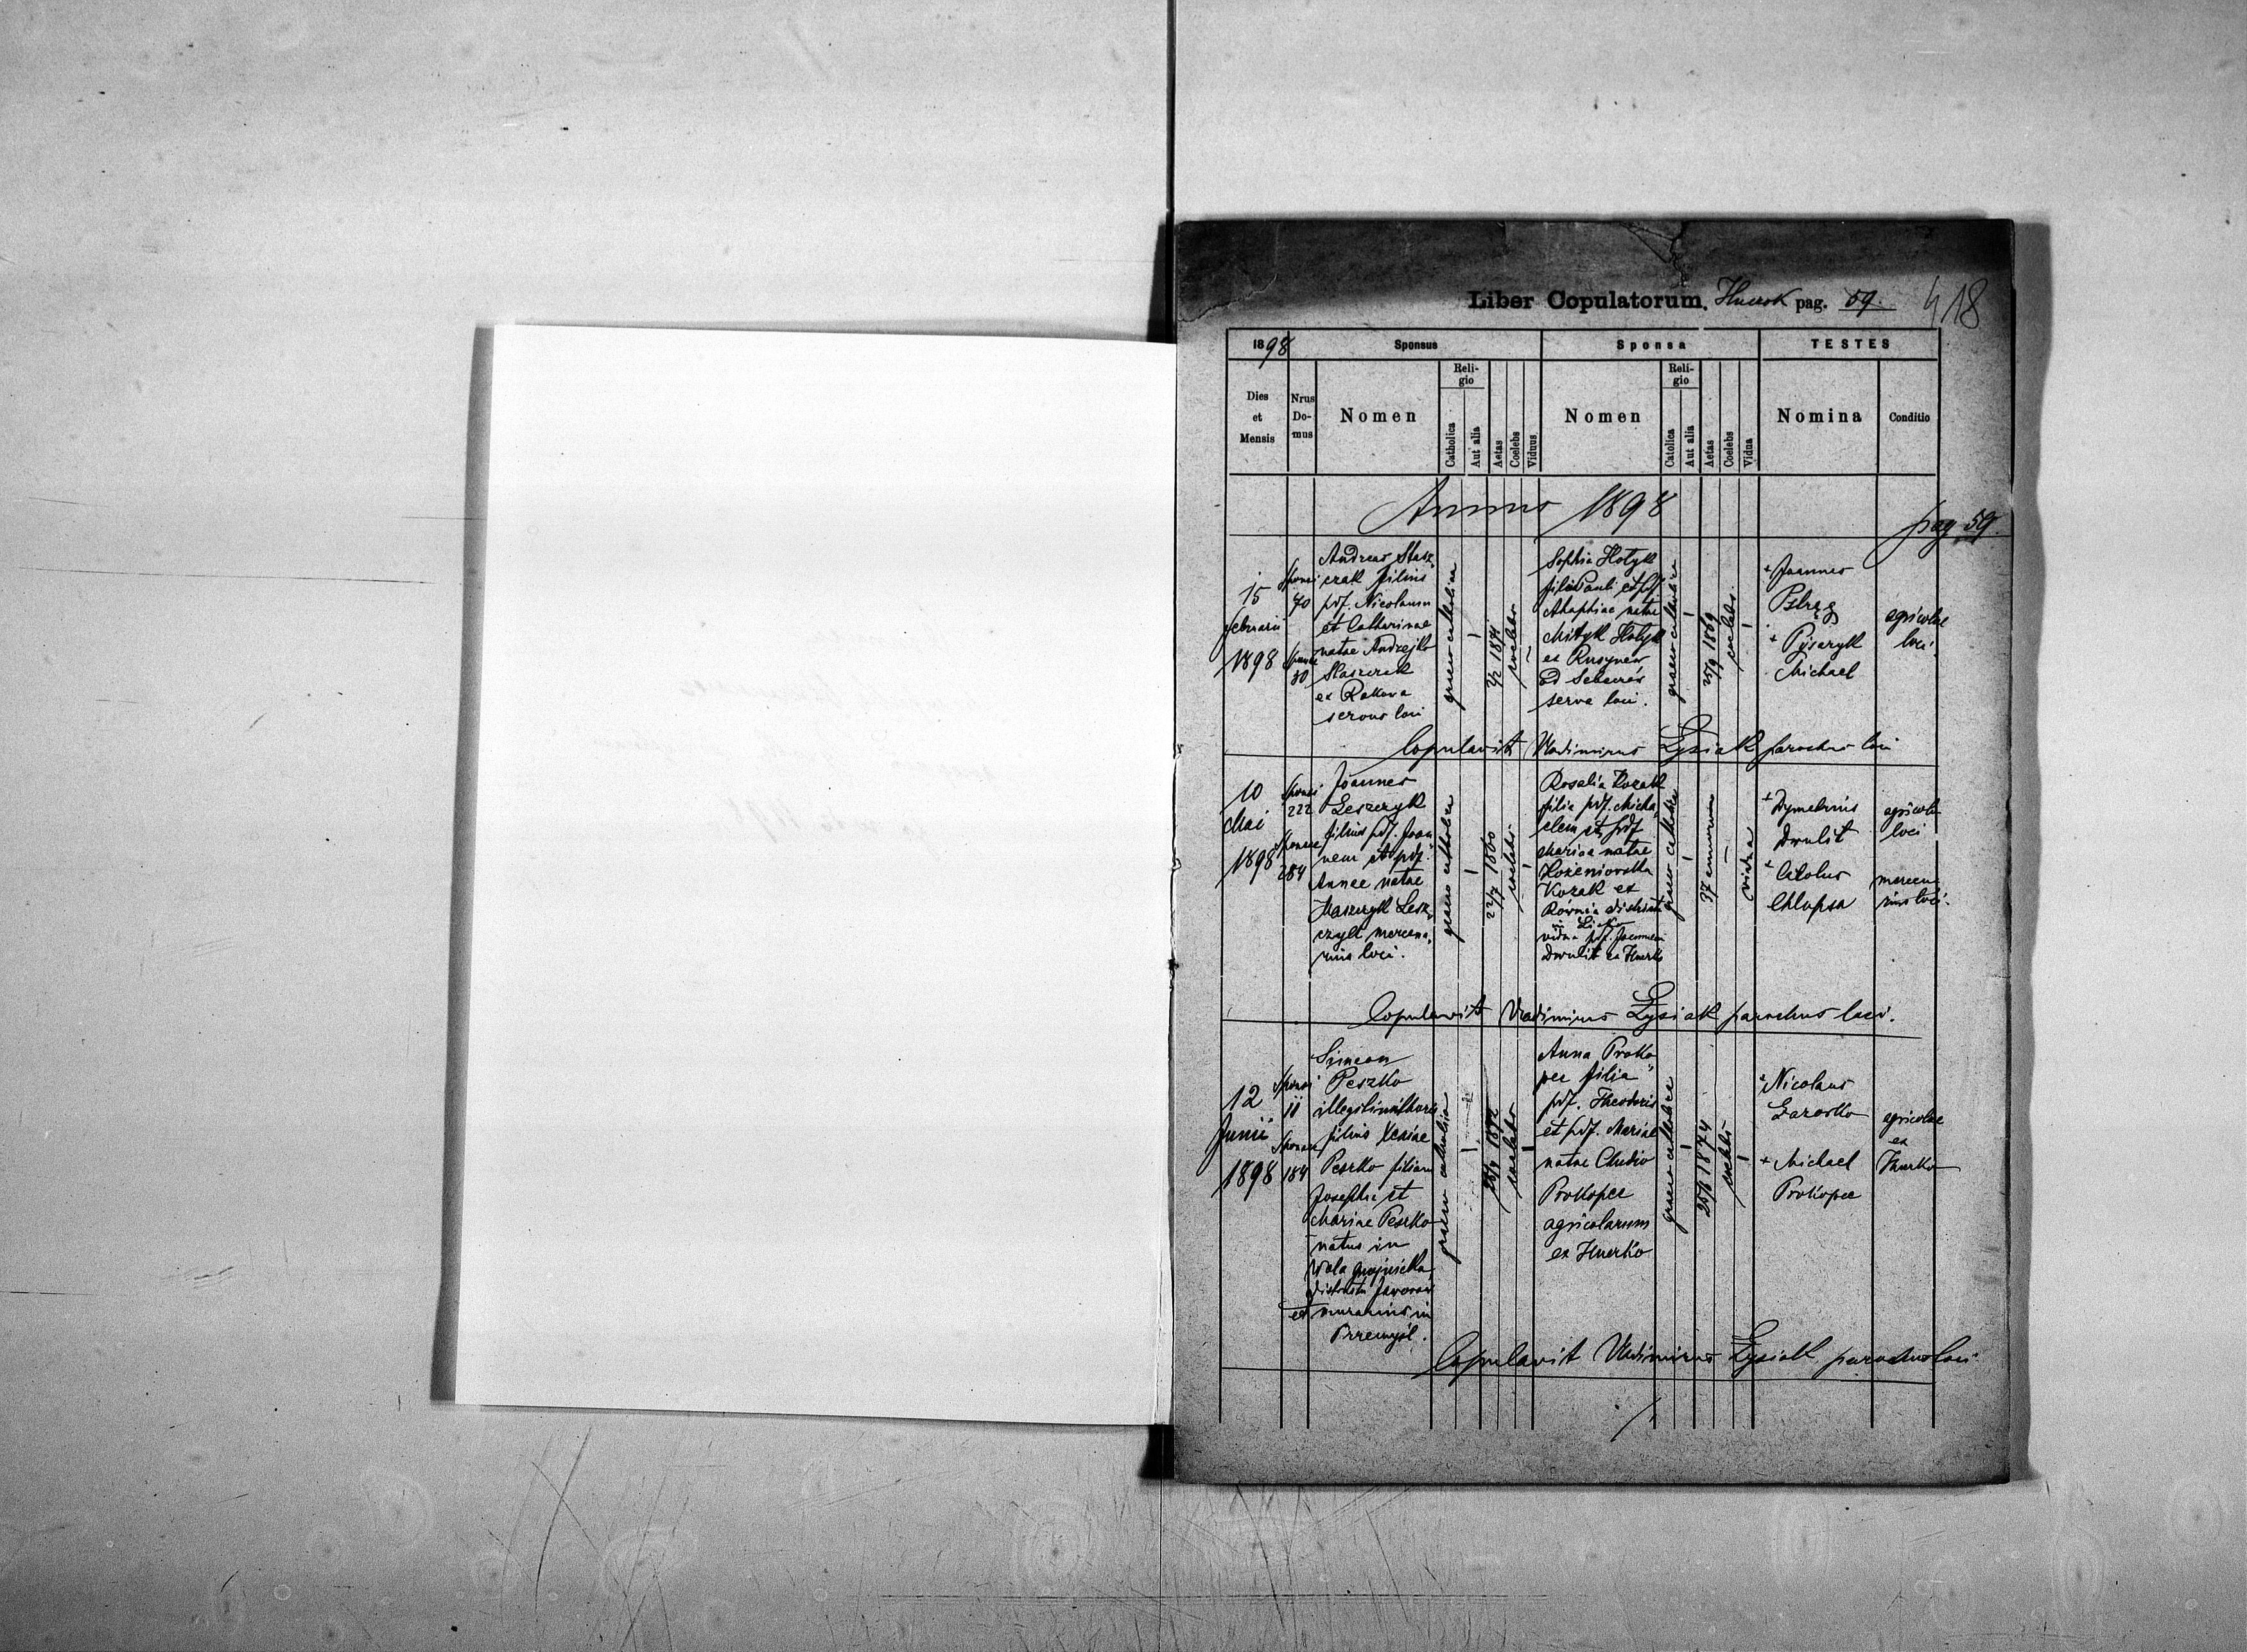 Liber Copulatorum, Hurok pag. 59. 418
1898 Sponsus Sponsa TESTES
Dies et Mensis
Nrus Do-mus
Nomen
Reli-gio
Catholica
Aut alia
Aetas
Coelebs
Viduus
Nomen
Reli-gio
Catolica
Aut alia
Aetas
Coelebs
Vidua
Nomina
Conditio
Anno 1898
pag 59.
15
Februarii
1898
Sponsi
70
Sponsae
80
Andreas Stasz
czak filius
pdf. Nicolaum
et Catharinae
natae Andrejko
Staszczak
ex Rakowa
servus loci
graeco catholica
1871
coelebs
Sophia Hotyk
filia Pauli et pdf.
Ahaphiae natae
Mityk Hotyk
ex
serva loci.
graeco catholica
25/9 1869
coelebs.
+ Joannes
+ Pisaryk
Michael
agricolae
loci.
Copulavit Vladimirus Łysiak parochus loci
10
Mai
1898
Sponsi
222
Sponsae
284
Joannes
Leszczyk
filius pdf. Joan
nem et pdf.
Annae natae
Leszczyk mercena
rius loci.
graeco catholica
22/7 1860
coelebs.
Rosalia Kozak
filia pdf. Micha
elem et pdf
Mariae natae
Korzeniowska
Kozak ex
Równia districtu
Lisko
vidua pdf. Joannem
Dwulit ex Hurko
graeco catholica
37 annorum
vidua
+ Dymetrius
Dwulit
+
Chlopsa
agricola
loci
mercen
rius loci.
Copulavit Vladimirus Łysiak parochus loci.
12
Junii
1898
Sponsi
11
Sponsae
184
Simeon
Peszko
illegitimi thori
filius Xeniae
Peszko filiam
Josephi et
Mariae Peszko
natus in
Wola
districtu Jaworow
et murarius in
Przemyśl.
graeco catholica
1872
coelebs
Anna Proko
pec filia
pdf. Theodoris
et pdf. Mariae
natae Chudio
Prokopec
agricolarum
ex Hurko
graeco catholica
25/8 1874
coelebs
+ Nicolaus
+ Michael
Prokopec
agricolae
ex
Hurko
Copulavit Vladimirus Łysiak parochus loci